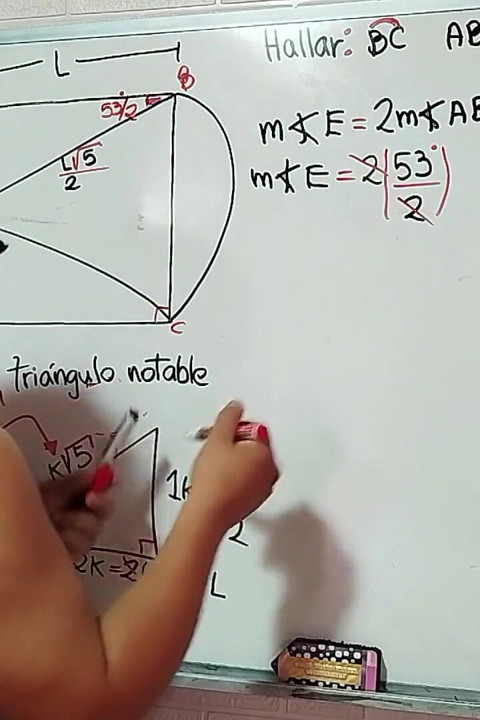 Hallar: BC AB
L
B
53°/2
L√5/2
m∡E = 2m∡AB
m∡E = 2(53°/2)
C
triángulo notable
k√5
2k=2
2
L